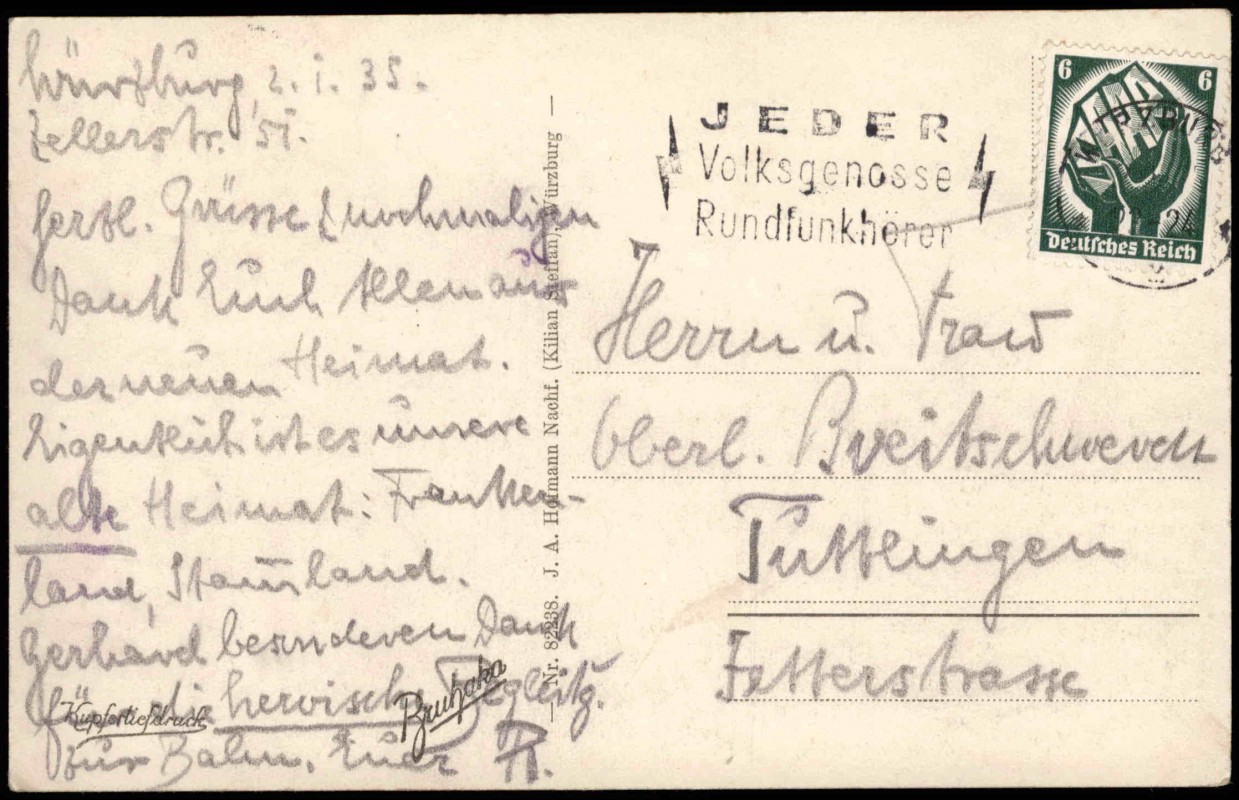 Würzburg, 2.I.35.
Zellerstr. 51.
Herzl. Grüsse & nochmaligen
Dank Euch Allen aus
der neuen Heimat.
Eigentlich ist es unsere
alte Heimat: Franken-
land, Stamland.
Gerhard besonderen Dank
für die heroische Begleitg.
zur Bahn. Euer R.
Kupfertiefdruck
Bruhaka
Nr. 82238. J. A. Hofmann Nachf. (Kilian Steffan), Würzburg
JEDER
Volksgenosse
Rundfunkhörer
6 6
Deutsches Reich
Herrn u. Frau
Oberl. Breitschwerdt
Tuttlingen
Zetterstrasse